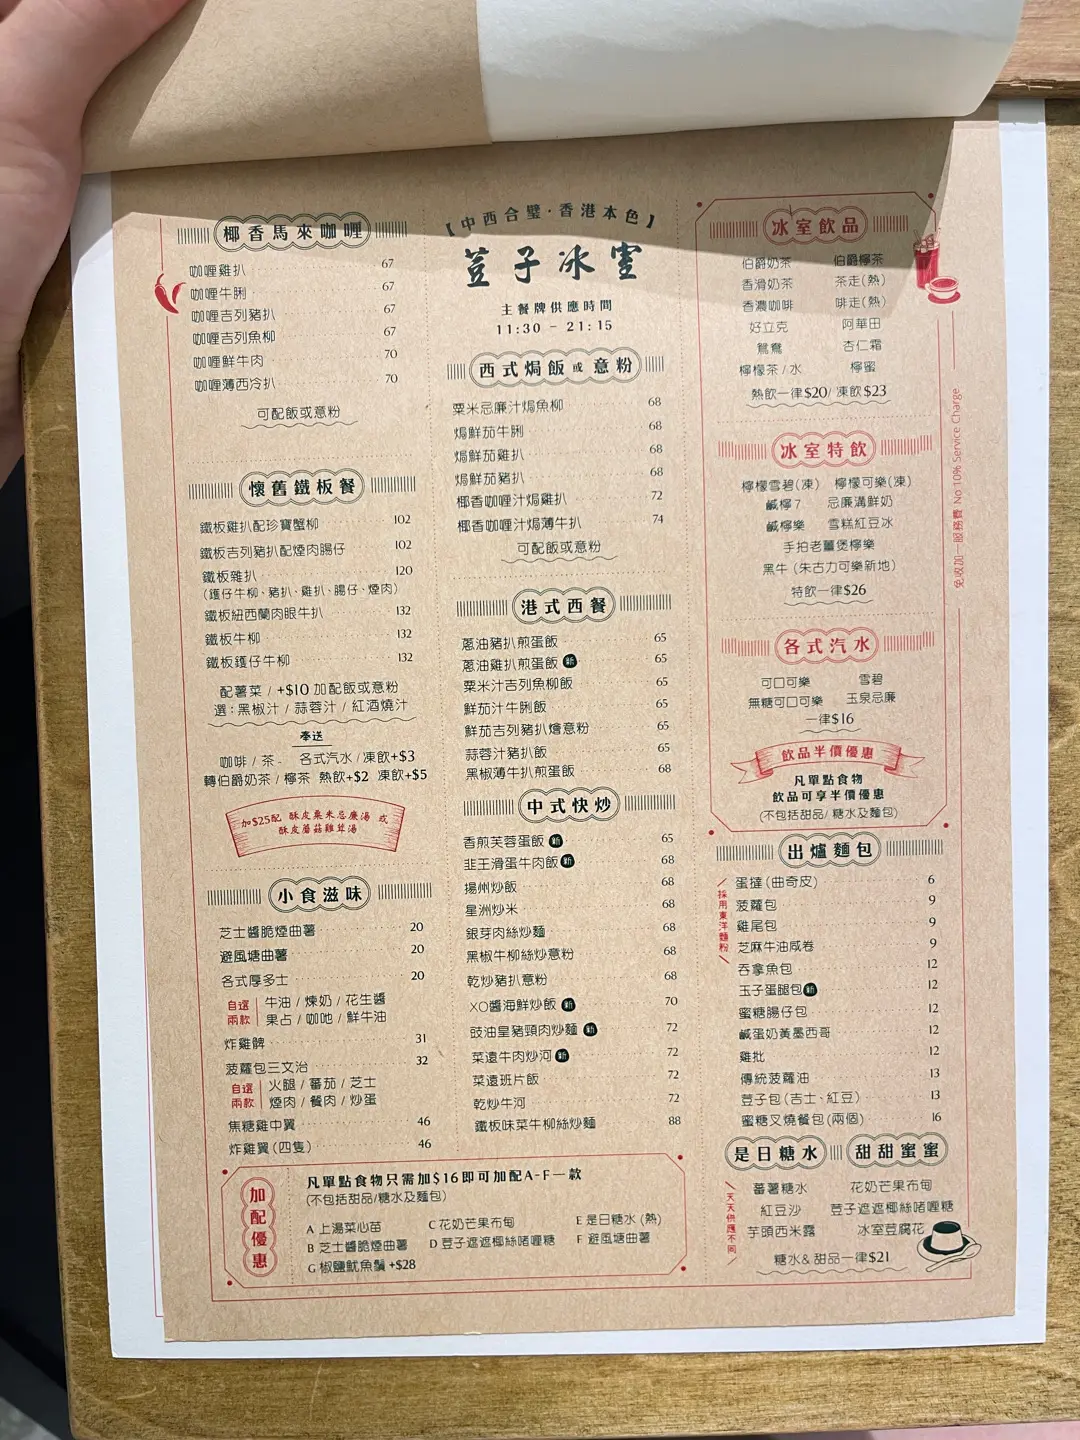 椰香馬來咖喱
咖喱雞扒 67
咖喱牛脷 67
咖喱吉列豬扒 67
咖喱吉列魚柳 67
咖喱鮮牛肉 70
咖喱薄西冷扒 70
可配飯或意粉
懷舊鐵板餐
鐵板雞扒配珍寶蟹柳 102
鐵板吉列豬扒配煙肉腸仔 102
鐵板雜扒 120
(鑊仔牛柳、豬扒、雞扒、腸仔、煙肉)
鐵板紐西蘭肉眼牛扒 132
鐵板牛柳 132
鐵板鑊仔牛柳 132
配薯菜 / +$10 加配飯或意粉
選:黑椒汁 / 蒜蓉汁 / 紅酒燒汁
奉送
咖啡 / 茶 各式汽水 / 凍飲+$3
轉伯爵奶茶 / 檸茶 熱飲+$2 凍飲+$5
加$25配 酥皮粟米忌廉湯 或
酥皮蘑菇雞茸湯
小食滋味
芝士醬脆煙曲薯 20
避風塘曲薯 20
各式厚多士 20
自選兩款 牛油 / 煉奶 / 花生醬
果占 / 咖吔 / 鮮牛油
炸雞髀 31
菠蘿包三文治 32
自選兩款 火腿 / 蕃茄 / 芝士
煙肉 / 餐肉 / 炒蛋
焦糖雞中翼 46
炸雞翼 (四隻) 46
【中西合璧·香港本色】
荳子冰室
主餐牌供應時間
11:30 - 21:15
西式焗飯或意粉
粟米忌廉汁焗魚柳 68
焗鮮茄牛脷 68
焗鮮茄雞扒 68
焗鮮茄豬扒 68
椰香咖喱汁焗雞扒 72
椰香咖喱汁焗薄牛扒 74
可配飯或意粉
港式西餐
蔥油豬扒煎蛋飯 65
蔥油雞扒煎蛋飯 新 65
粟米汁吉列魚柳飯 65
鮮茄汁牛脷飯 65
鮮茄吉列豬扒燴意粉 65
蒜蓉汁豬扒飯 65
黑椒薄牛扒煎蛋飯 68
中式快炒
香煎芙蓉蛋飯 新 65
韭王滑蛋牛肉飯 新 68
揚州炒飯 68
星洲炒米 68
銀芽肉絲炒麵 68
黑椒牛柳絲炒意粉 68
乾炒豬扒意粉 68
XO醬海鮮炒飯 新 70
豉油皇豬頸肉炒麵 新 72
菜遠牛肉炒河 新 72
菜遠班片飯 72
乾炒牛河 72
鐵板味菜牛柳絲炒麵 88
冰室飲品
伯爵奶茶 伯爵檸茶
香滑奶茶 茶走(熱)
香濃咖啡 啡走(熱)
好立克 阿華田
鴛鴦 杏仁霜
檸檬茶 / 水 檸蜜
熱飲一律$20/ 凍飲$23
冰室特飲
檸檬雪碧(凍) 檸檬可樂(凍)
鹹檸7 忌廉溝鮮奶
鹹檸樂 雪糕紅豆冰
手拍老薑煲檸樂
黑牛 (朱古力可樂新地)
特飲一律$26
各式汽水
可口可樂 雪碧
無糖可口可樂 玉泉忌廉
一律$16
飲品半價優惠
凡單點食物
飲品可享半價優惠
(不包括甜品/ 糖水及麵包)
免收加一服務費 No 10% Service Charge
出爐麵包
採用東洋麵粉
蛋撻 (曲奇皮) 6
菠蘿包 9
雞尾包 9
芝麻牛油咸卷 9
吞拿魚包 12
玉子蛋腿包 新 12
蜜糖腸仔包 12
鹹蛋奶黃墨西哥 12
雞批 12
傳統菠蘿油 13
荳子包 (吉士、紅豆) 13
蜜糖叉燒餐包 (兩個) 16
是日糖水 甜甜蜜蜜
天天供應不同
蕃薯糖水 花奶芒果布甸
紅豆沙 荳子遮遮椰絲啫喱糖
芋頭西米露 冰室荳腐花
糖水& 甜品一律$21
加配優惠
凡單點食物只需加$16即可加配A-F一款
(不包括甜品/糖水及麵包)
A 上湯菜心苗 C 花奶芒果布甸 E 是日糖水 (熱)
B 芝士醬脆煙曲薯 D 荳子遮遮椰絲啫喱糖 F 避風塘曲薯
G 椒鹽魷魚鬚 +$28